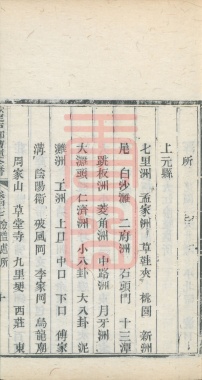 所
上元縣
七里洲 孟家洲 草鞋夾 桃園 新洲
尾 白沙灘 二府洲 石頭門 十三潭
跳板洲 菱角洲 中路洲 月牙洲
大滧頭 仁濟洲 小八卦 大八卦 泥
灘洲 工洲 上口 中口 下口 傅家
溝 陰陽衛 破風岡 李家岡 烏龍廟
周家山 草堂寺 九里埂 西莊 東
十